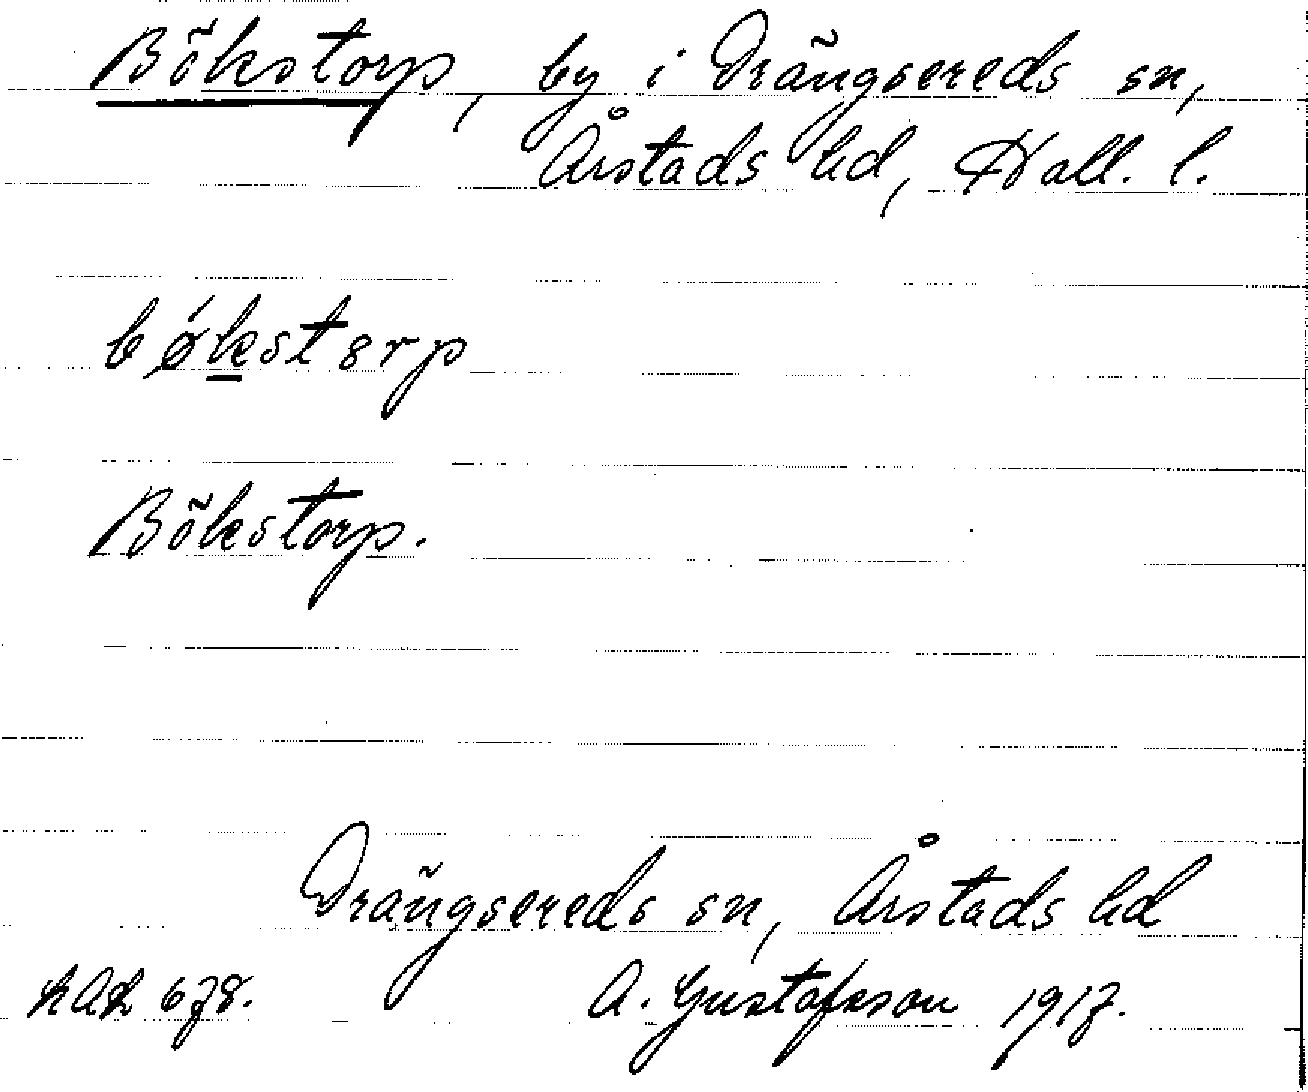 Bökstorp, by i Drängsereds sn,
Årstads hd, Hall. l.
bǿkstorp
Bökstorp.
Drängsereds sn, Årstads hd
678.
A. Gustafsson 1917.